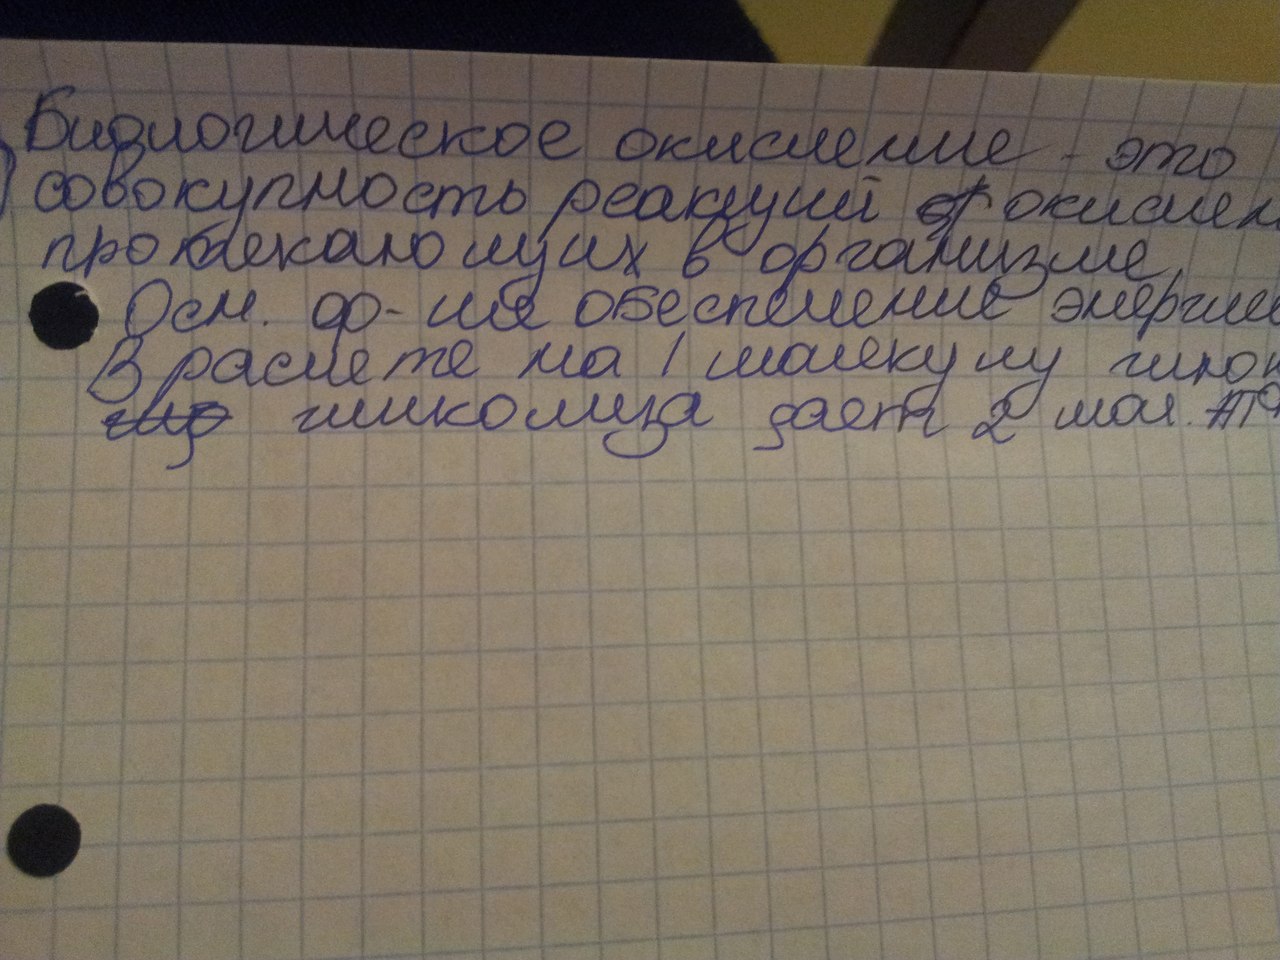 Биологическое окисление - это
совокупность реакций окислен
протекающих в организме.
Осн. ф-ия обеспечение энергие
В расчете на 1 молекулу глюк
гликолиза дает 2 мол. АТФ